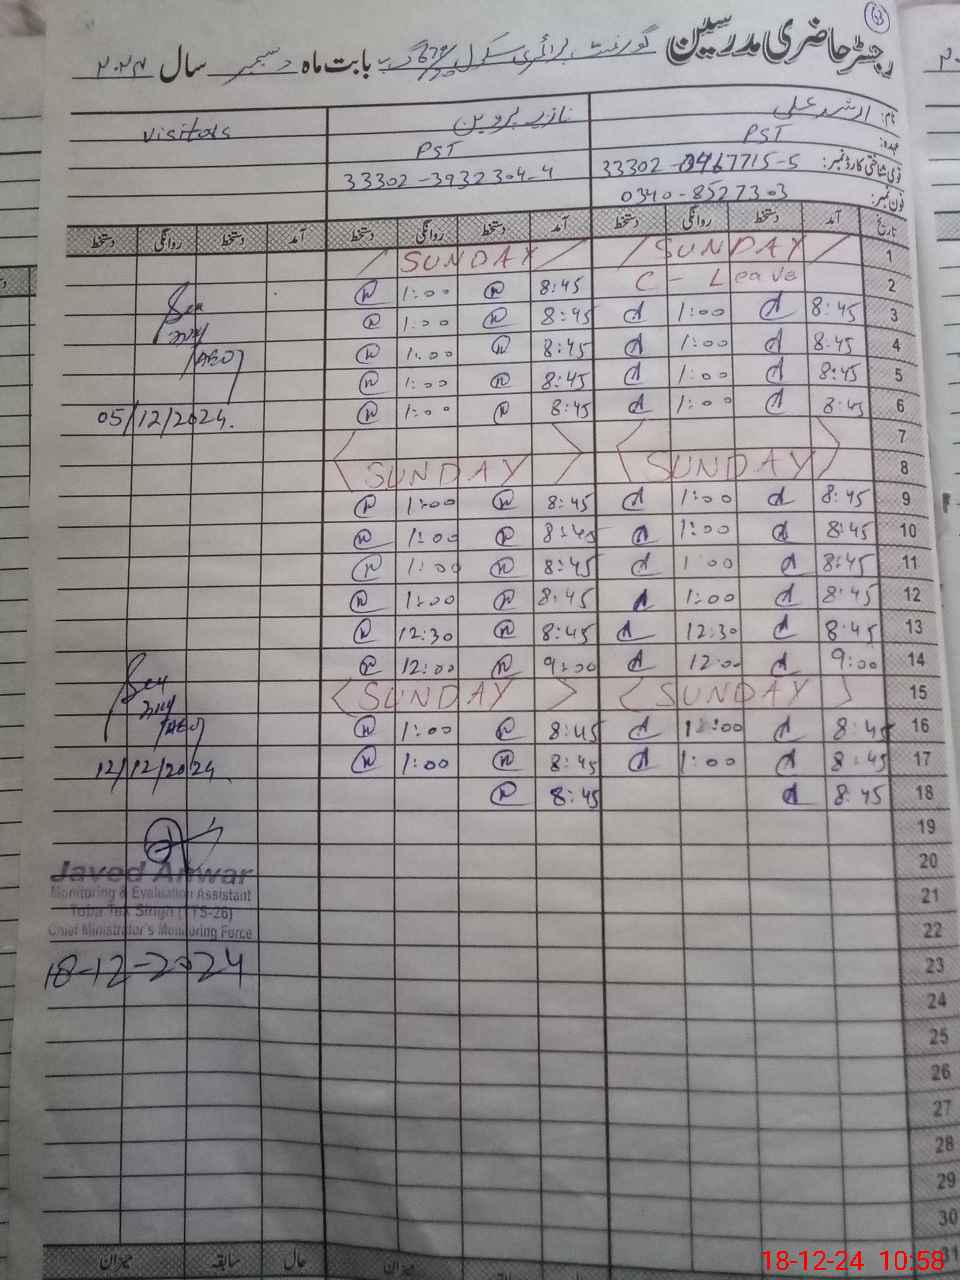 رجسٹر حاضری مدرسین گورنمنٹ پرائمری سکول بابت ماہ دسمبر سال ۲۰۲۴
نام: ارشد علی نازیہ پروین Visitors
عہدہ: PST PST
قومی شناختی کارڈ نمبر: 33302-0467715-5 33302-3932304-4
فون نمبر: 0340-8527303
تاریخ آمد دستخط روانگی دستخط آمد دستخط روانگی دستخط آمد دستخط روانگی دستخط
1 SUNDAY SUNDAY
2 C - Leave 8:45 1:00
3 8:45 1:00 8:45 1:00
4 8:45 1:00 8:45 1:00
5 8:45 1:00 8:45 1:00
AEO
6 8:45 1:00 8:45 1:00 05/12/2024.
7
8 SUNDAY SUNDAY
9 8:45 1:00 8:45 1:00
10 8:45 1:00 8:45 1:00
11 8:45 1:00 8:45 1:00
12 8:45 1:00 8:45 1:00
13 8:45 12:30 8:45 12:30
14 9:00 12:00 9:00 12:00
15 SUNDAY SUNDAY
16 8:45 1:00 8:45 1:00
AEO
17 8:45 1:00 8:45 1:00 12/12/2024
18 8:45 8:45
19
20
21
22
23
24
25
26
27
28
29
30
31
Javed Anwar
Monitoring & Evaluation Assistant
Toba Tek Singh (TTS-26)
Chief Minister's Monitoring Force
18-12-2024
میزان سابقہ حال میزان
18-12-24 10:58